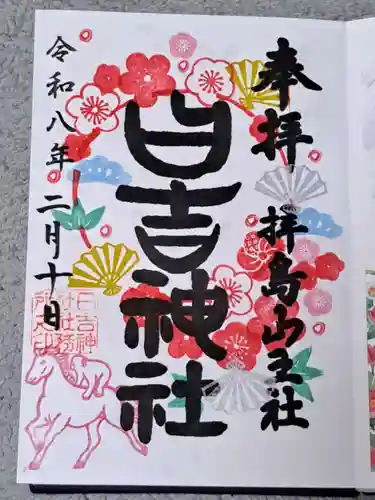 奉拝
拝島山王社
日吉神社
令和八年二月十日
日吉神
社社務
所之印